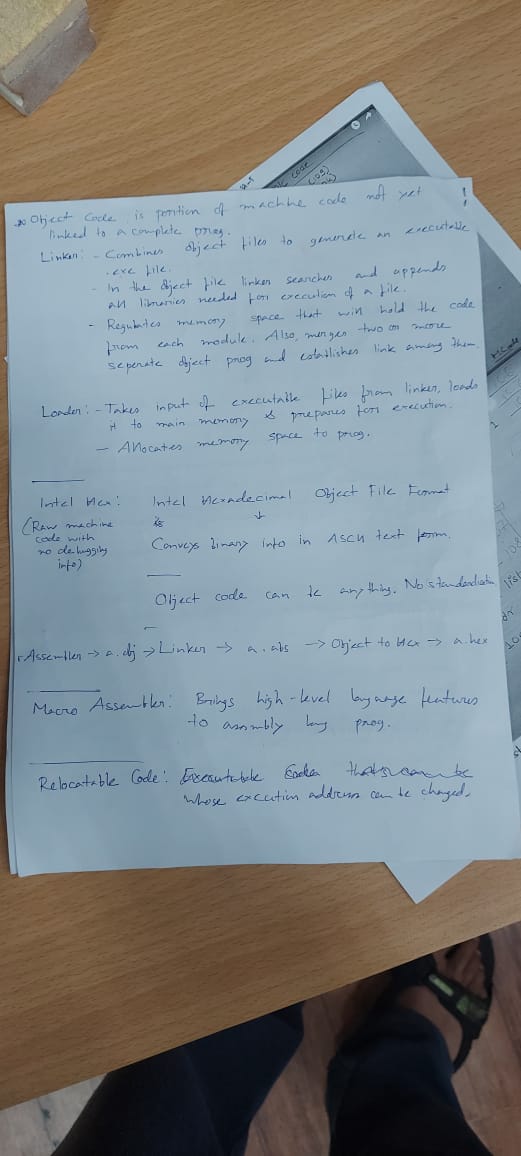 Object Code is portion of machine code not yet
linked to a complete prog.
Linker: - Combines object files to generate an executable
.exe file.
- In the object file linker searches and appends
all libraries needed for execution of a file.
- Regulates memory space that will hold the code
from each module. Also, merges two or more
seperate object prog and establishes link among them.
Loader: - Takes input of executable files from linker, loads
it to main memory & prepares for execution.
- Allocates memory space to prog.
Intel Hex: Intel Hexadecimal Object File Format
(Raw machine
code with
no debugging
info)
↓
Conveys binary into in ASCII text form.
Object code can be anything. No standardisation
Assembler → a.obj → Linker → a.abs → Object to Hex → a.hex
Macro Assembler: Brings high-level language features
to assmbly lang prog.
Relocatable Code: Executable Code
whose excution address can be changed.